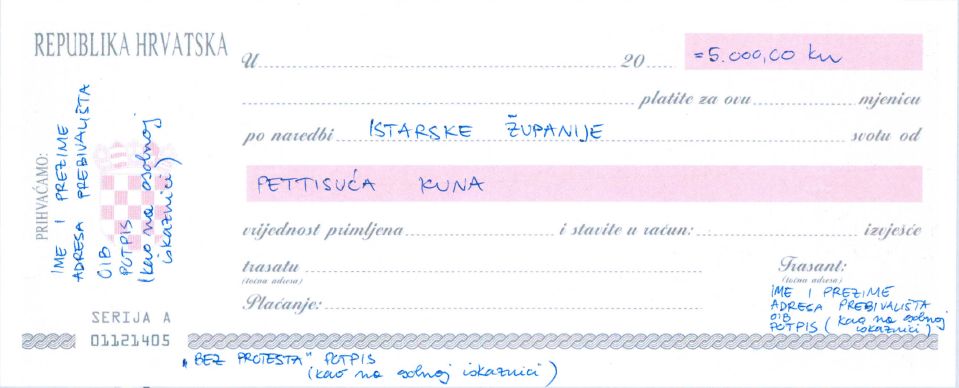 REPUBLIKA HRVATSKA
U 20 =5.000,00 kn
platite za ovu mjenicu
po naredbi ISTARSKE ŽUPANIJE svotu od
PETTISUĆA KUNA
vrijednost primljena i stavite u račun: izvješće
trasatu
(točna adresa)
Plaćanje:
Trasant:
(točna adresa)
IME I PREZIME
ADRESA PREBIVALIŠTA
OIB
POTPIS (kao na osobnoj
iskaznici)
PRIHVAĆAMO:
IME I PREZIME
ADRESA PREBIVALIŠTA
OIB
POTPIS
(kao na osobnoj
iskaznici)
SERIJA A
01121405
„BEZ PROTESTA" POTPIS
(kao na osobnoj iskaznici)